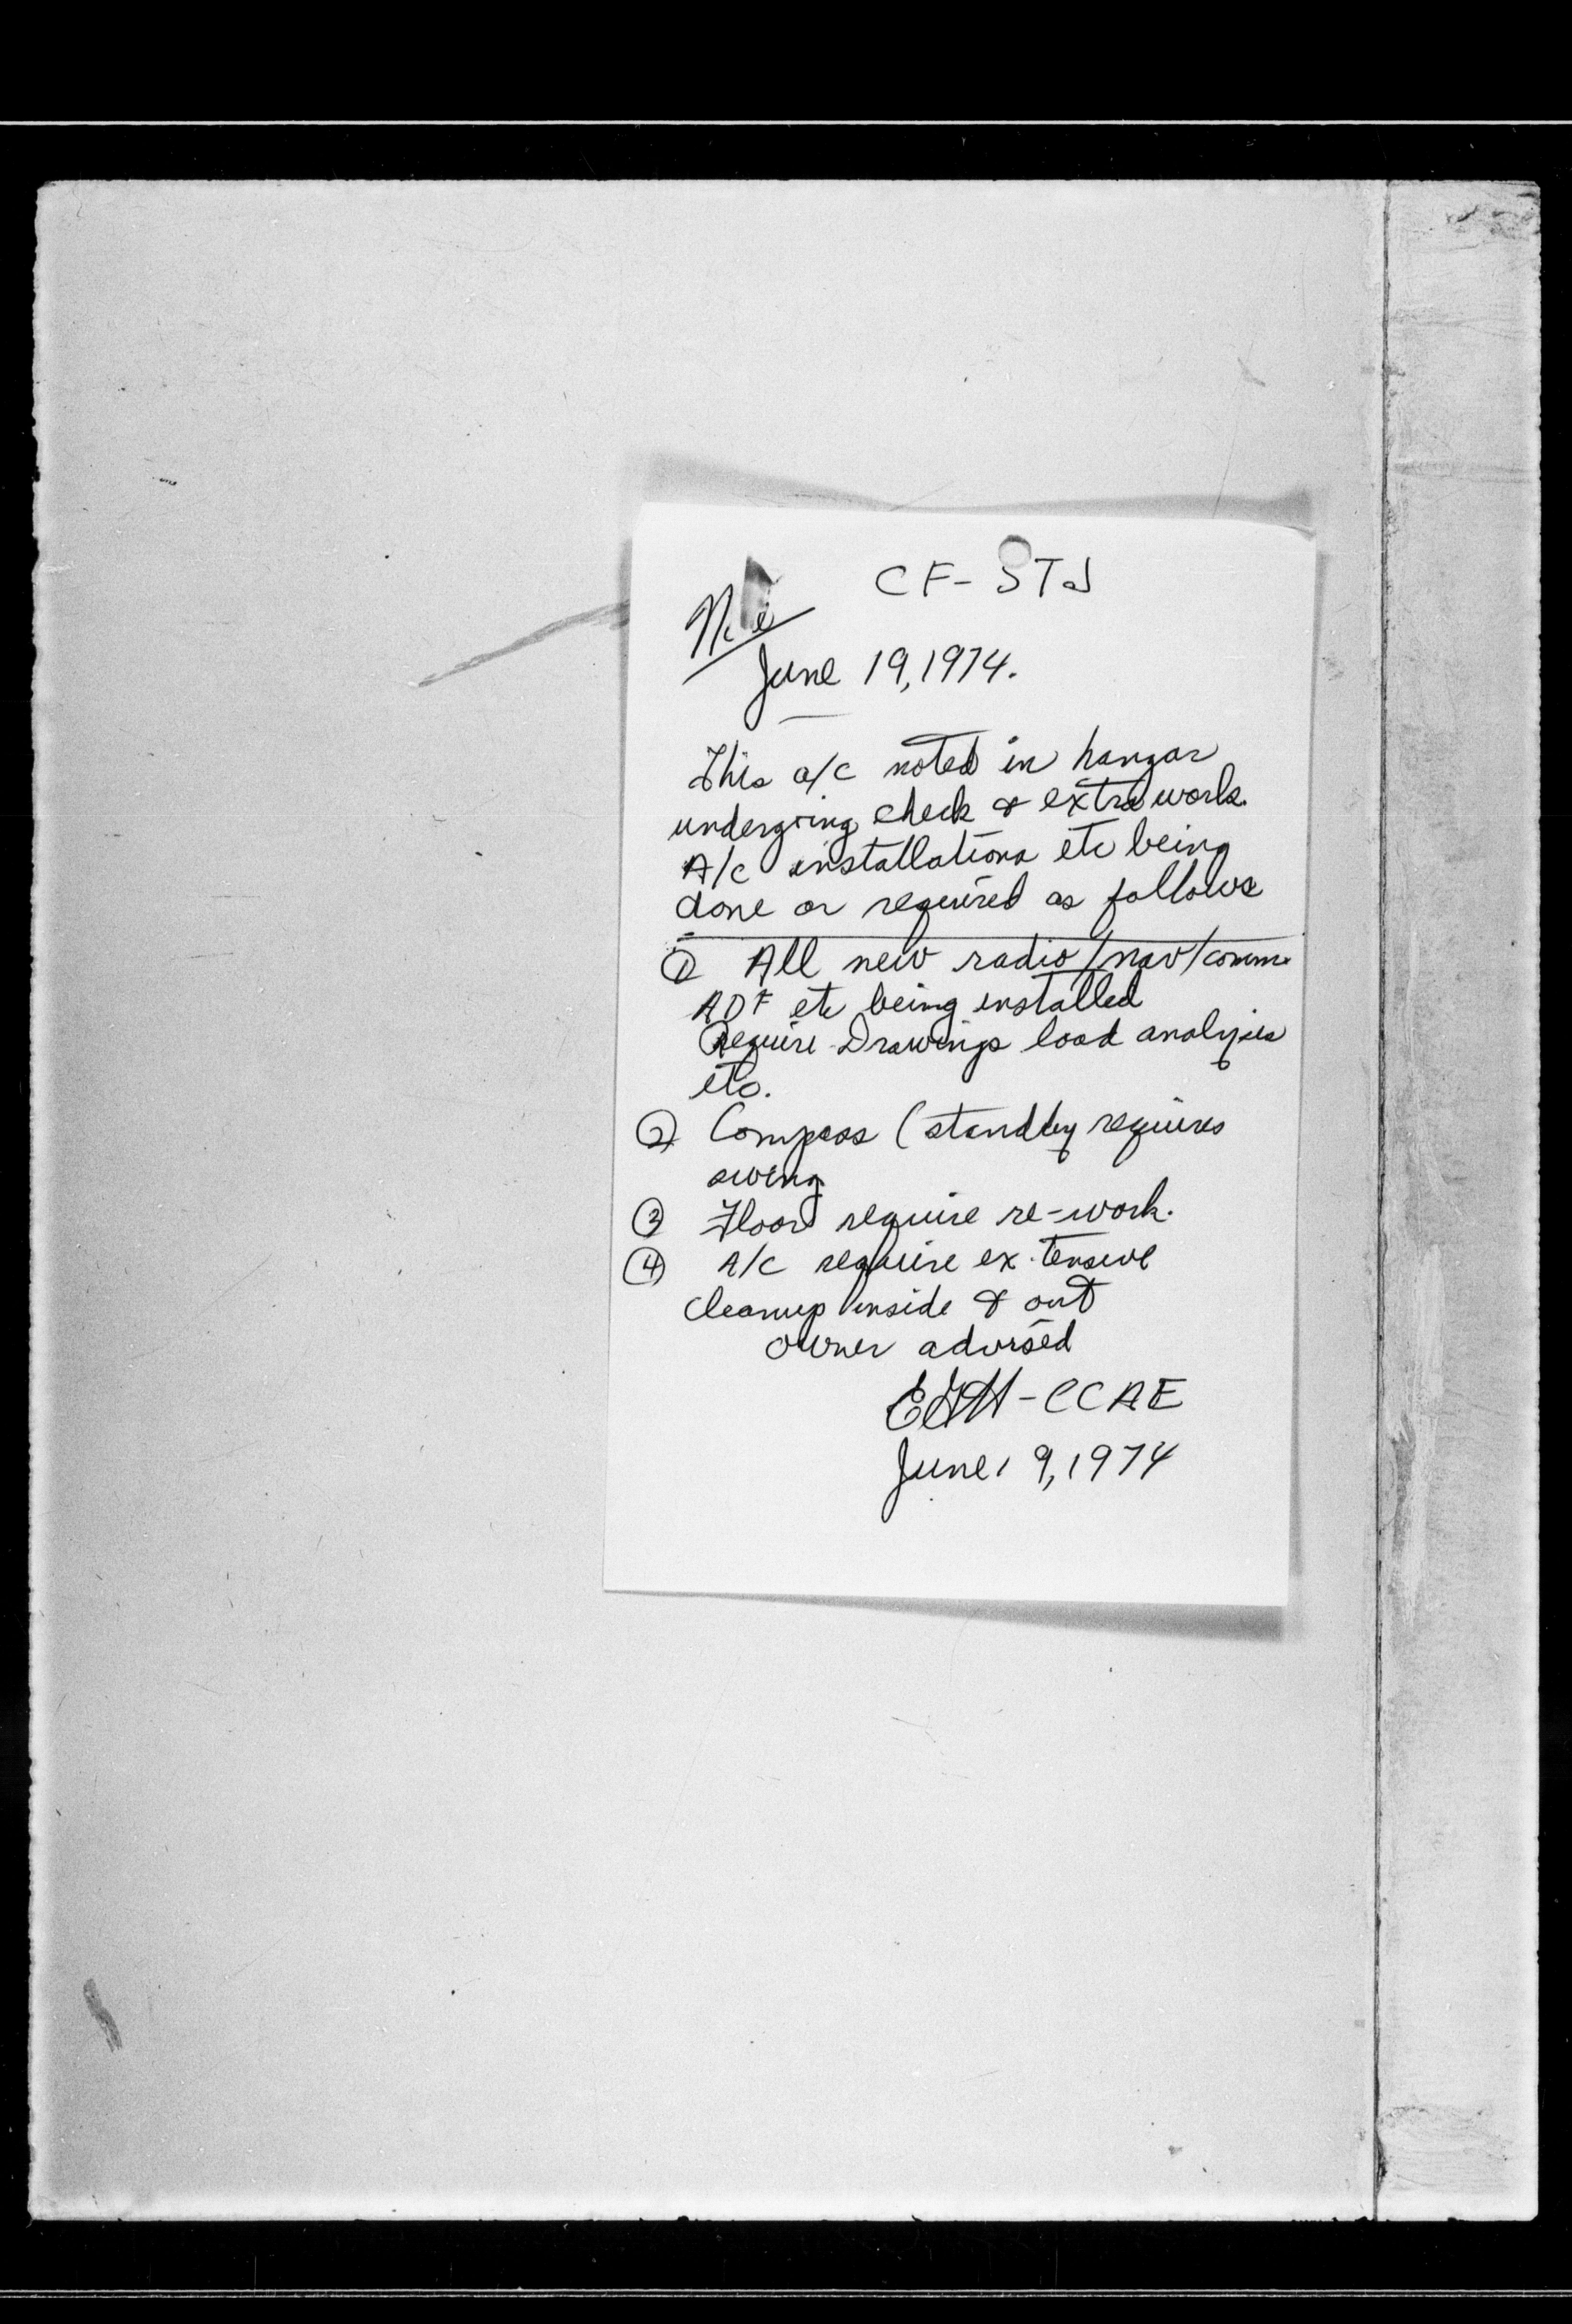 CF-STJ
June 19, 1974.
This a/c noted in hangar
undergoing check & extra work.
A/c installations etc being
done or required as follows
① All new radio/nav/comm.
ADF etc being installed
Require Drawings load analysis
etc.
② Compass (standby requires
swing
③ Floor require re-work.
④ A/C require extensive
cleanup inside & out
owner advised
- CCAE
June 19, 1974